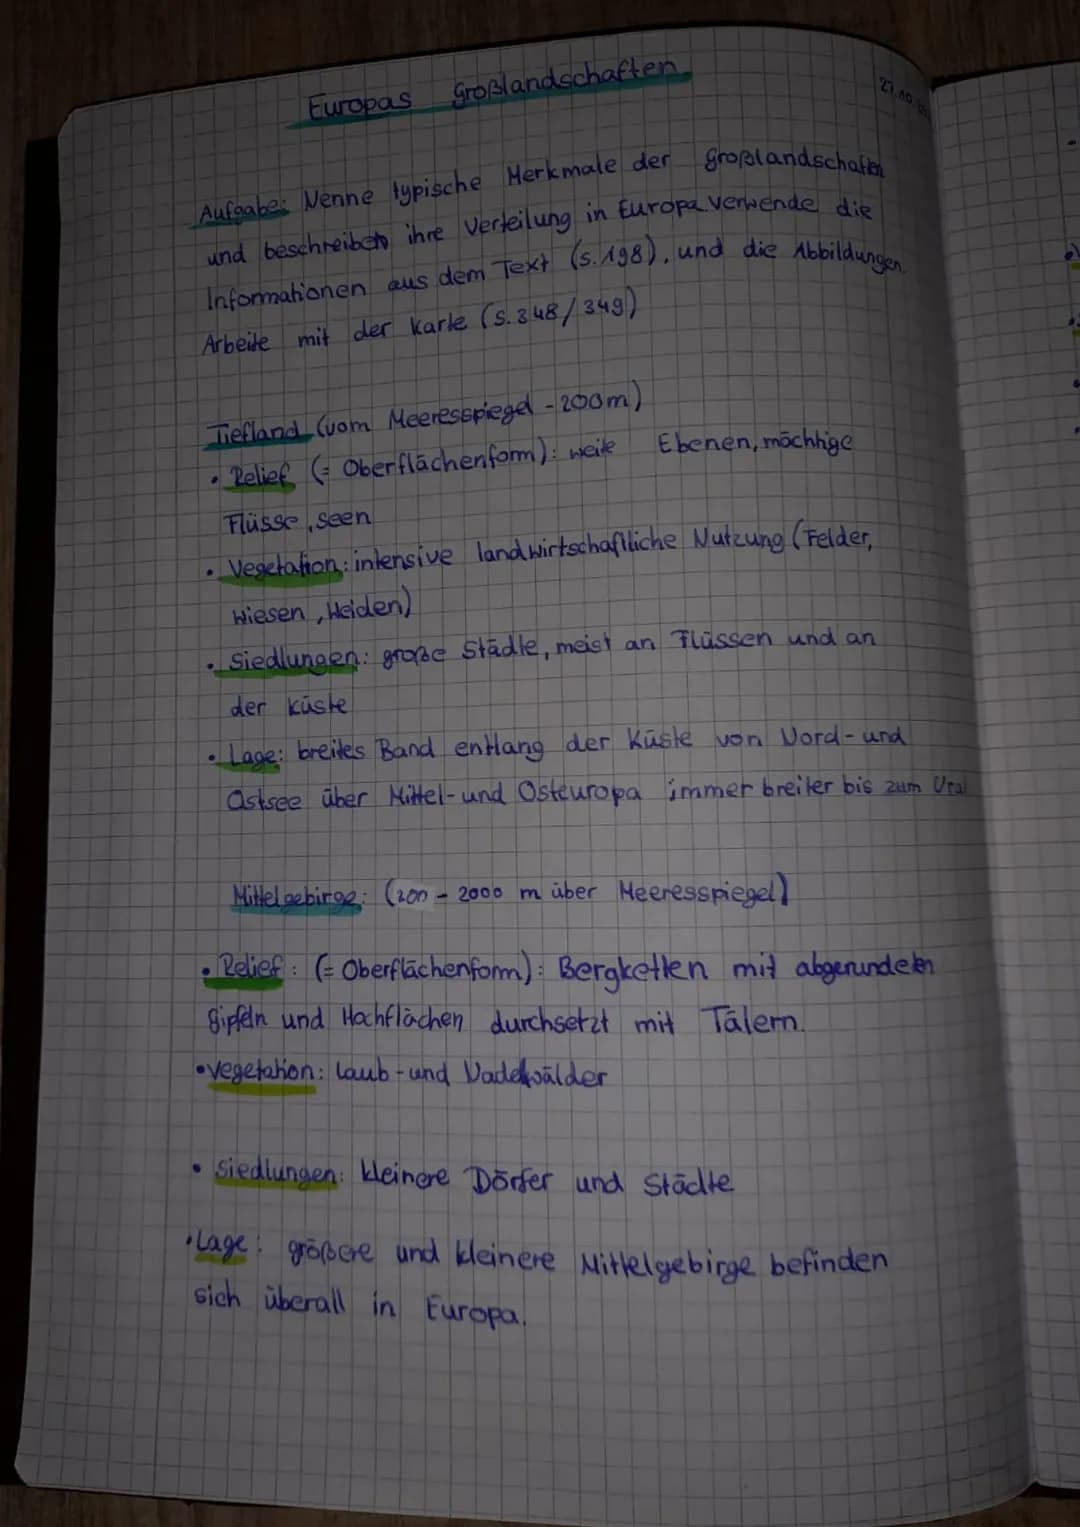 Europas Großlandschaften
27.10.
Aufgabe: Nenne typische Merkmale der Großlandschaften
und beschreibe ihre Verteilung in Europa verwende die
Informationen aus dem Text (S. 198), und die Abbildungen.
Arbeite mit der Karte (S. 348/349)
Tiefland (vom Meeresspiegel - 200m)
• Relief (= Oberflächenform): weite Ebenen, mächtige
Flüsse, Seen
• Vegetation: intensive landwirtschaftliche Nutzung (Felder,
Wiesen, Weiden)
• Siedlungen: große Städte, meist an Flüssen und an
der Küste
• Lage: breites Band entlang der Küste von Nord- und
Ostsee über Mittel- und Osteuropa immer breiter bis zum Ural
Mittelgebirge: (200 - 2000 m über Meeresspiegel)
• Relief: (= Oberflächenform): Bergketten mit abgerundeten
Gipfeln und Hochflächen durchsetzt mit Tälern.
• Vegetation: Laub- und Nadelwälder
• Siedlungen: kleinere Dörfer und Städte
• Lage: größere und kleinere Mittelgebirge befinden
sich überall in Europa.